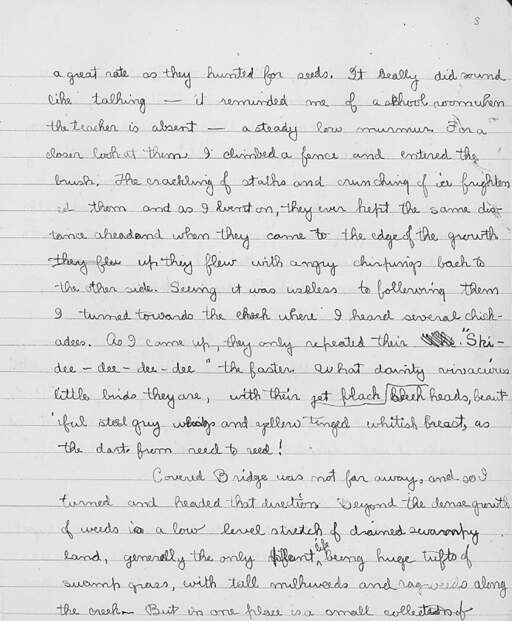 8
a great rate as they hunted for seeds. It really did sound
like talking — it reminded me of a school room when
the teacher is absent — a steady low murmur. For a
closer look at them I climbed a fence and entered the
brush. The crackling of stalks and crunching of ice frighten
ed them and as I went on, they ever kept the same dis-
tance ahead and when they came to the edge of the growth
they flew up they flew with angry chirpings back to
the other side. Seeing it was useless to following them
I turned towards the creek where I heard several chick-
adees. As I came up, they only repeated their "Ski-
dee - dee - dee - dee" the faster. What dainty vivacious
little birds they are, with their jet black heads, beaut
iful steel gray wings and yellow tinged whitish breast, as
the darts from reed to reed!
Covered Bridge was not far away, and so I
turned and headed that direction. Beyond the dense growth
of weeds is a low level stretch of drained swampy
land, generally the only plant life being huge tufts of
swamp grass, with tall milkweeds and ragweeds along
the creek. But in one place is a small collection of